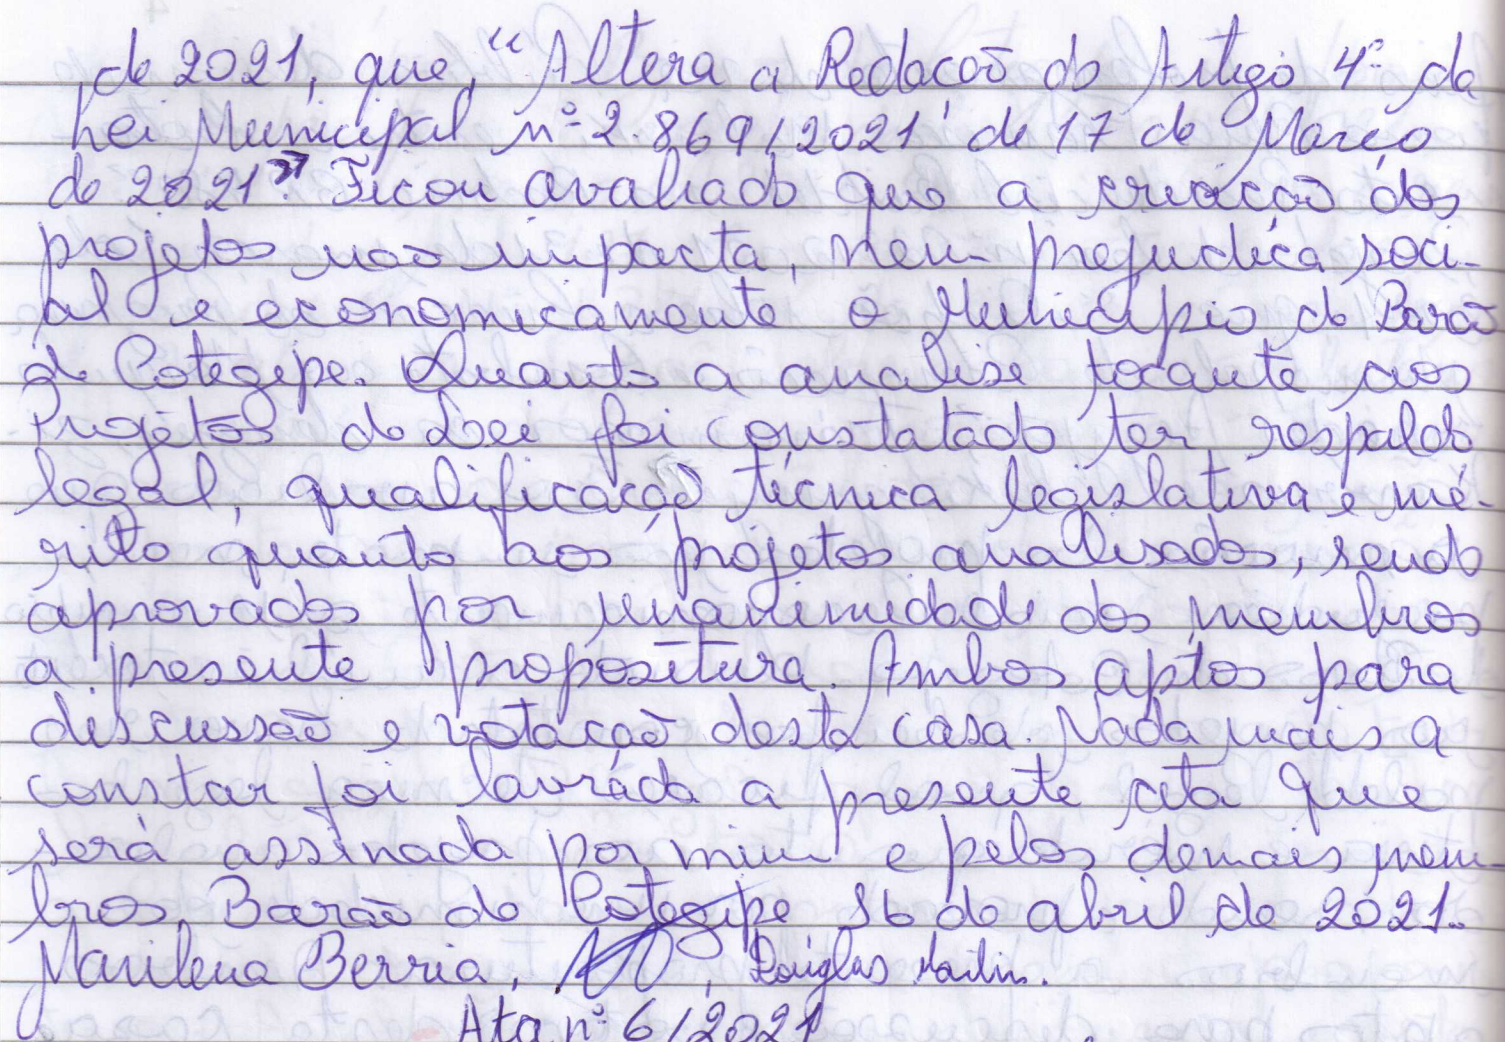 de 2021, que, "Altera a Redação do Artigo 4º da
Lei Municipal nº 2.869/2021, de 17 de Março
de 2021". Ficou avaliado que a criação dos
projetos não impacta, nem prejudica soci-
al e economicamente o Município de Barão
de Cotegipe. Quanto a analise tocante aos
Projetos de Lei foi constatado ter respaldo
legal, qualificação técnica legislativa e mé-
rito quanto aos projetos analisados, sendo
aprovados por unanimidade dos membros
a presente propositura. Ambos aptos para
discussão e votação desta casa. Nada mais a
constar foi lavrada a presente ata que
será assinada por mim e pelos demais mem-
bros Barão de Cotegipe 16 de abril de 2021.
Marilena Berria, , Douglas
Ata nº 6/2021